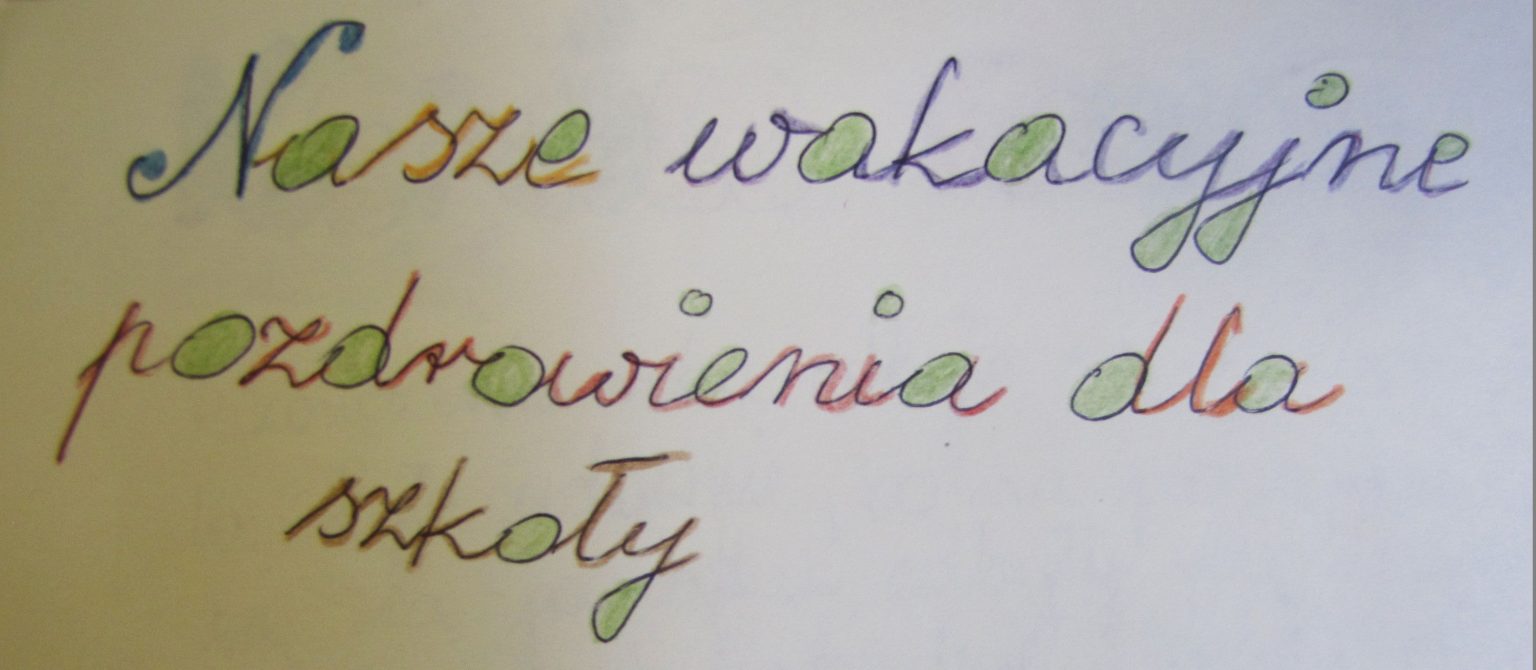 Nasze wakacyjne
pozdrowienia dla
szkoły